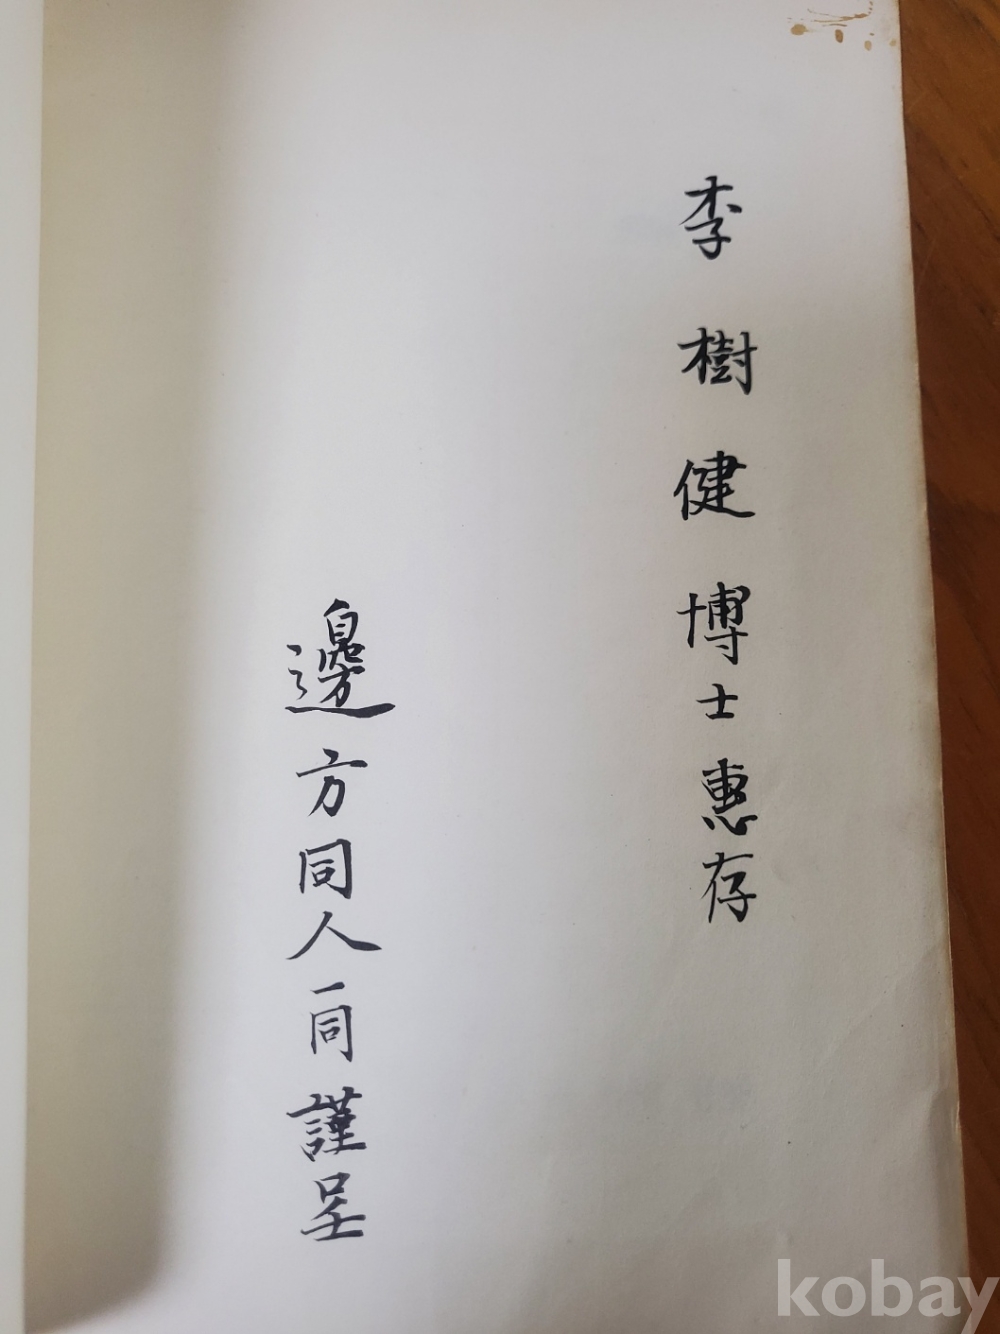 李樹健博士惠存
邊方同人一同謹呈
kobay